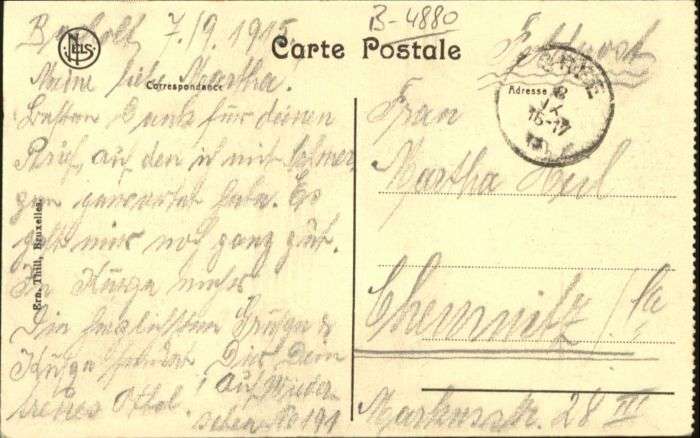 B-4880
7./9. 1915.
Carte Postale
Feldpost
Meine liebe Martha.
Correspondance
Adresse
8
IX
16-17
15
Besten Dank für deinen
Brief, auf den ich mit Schmer-
zen gewartet habe. Es
geht mir noch ganz gut.
In Kürze mehr.
Die herzlichsten Grüße &
Küsse sendet Dir Dein
treues Ottol. ! Auf Wieder-
sehen No 191
Frau
Martha
Chemnitz /Sa.
Markusstr. 28 III
Nels
Ern. Thill, Bruxelles.